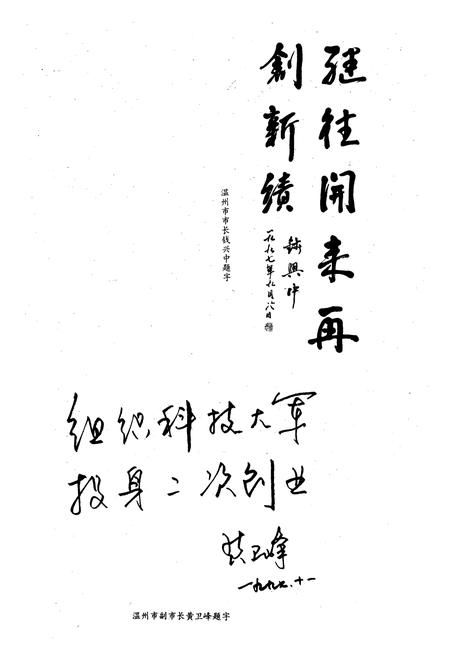 继往開来再
創新績
钱興中
一九九七年九月六日
温州市市长钱兴中题字
组织科技大军
投身二次创业
黄卫峰
一九九七.十一
温州市副市长黄卫峰题字